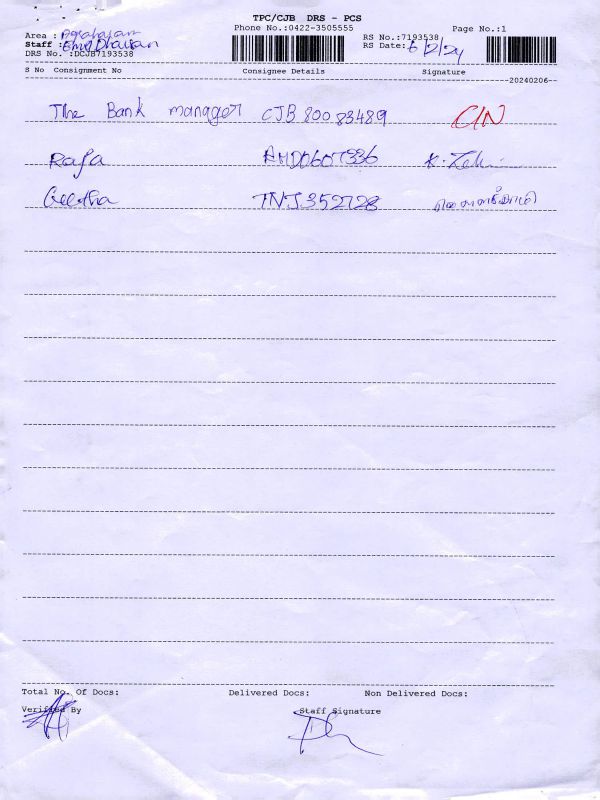 TPC/CJB DRS - PCS
Phone No.:0422-3505555
Page No.:1
Area :
Staff :
RS No.:7193538
RS Date: 6/2/24
DRS No. :DCJB7193538
S No Consignment No Consignee Details Signature
20240206
The Bank manager CJB 80083489 C/N
Raja AMD0607336
Geetha TNJ352728
Total No. Of Docs: Delivered Docs: Non Delivered Docs:
Verified By Staff Signature